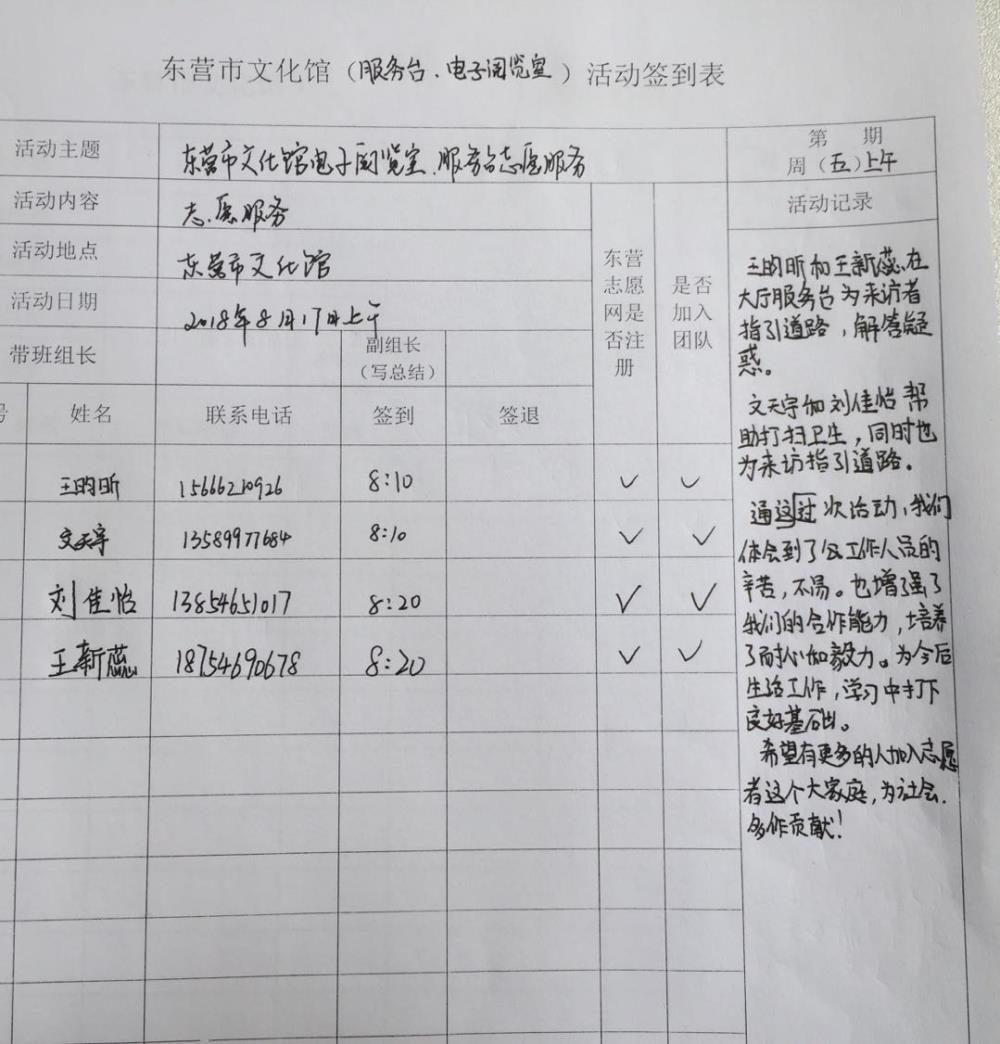 东营市文化馆（服务台、电子阅览室）活动签到表
活动主题 东营市文化馆电子阅览室、服务台志愿服务
第 期
周（五）上午
活动内容 志愿服务
活动地点 东营市文化馆
活动日期 2018年8月17日上午
带班组长 副组长
（写总结）
东营
志愿
网是
否注
册
是否
加入
团队
号 姓名 联系电话 签到 签退
王昀昕 15666210926 8:10 ✓ ✓
文天宇 13589977684 8:10 ✓ ✓
刘佳怡 13854651017 8:20 ✓ ✓
王新蕊 18754690678 8:20 ✓ ✓
活动记录
王昀昕和王新蕊在
大厅服务台为来访者
指引道路，解答疑
惑。
文天宇和刘佳怡帮
助打扫卫生，同时也
为来访指引道路。
通这过次活动，我们
体会到了工作人员的
辛苦，不易。也增强了
我们的合作能力，培养
了耐心和毅力。为今后
生活工作，学习中打下
良好基础。
希望有更多的人加入志愿
者这个大家庭，为社会
多作贡献！